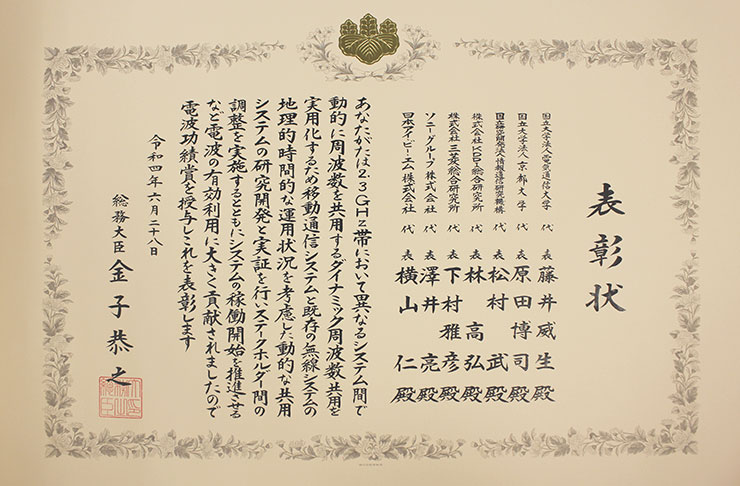 表彰状
国立大学法人電気通信大学 代表 藤井威生殿
国立大学法人京都大学 代表 原田博司殿
国立研究開発法人情報通信研究機構 代表 松村武殿
株式会社KDDI総合研究所 代表 林高弘殿
株式会社三菱総合研究所 代表 下村雅彦殿
ソニーグループ株式会社 代表 澤井亮殿
日本アイ・ビー・エム株式会社 代表 横山仁殿
あなたがたは2.3GHz帯において異なるシステム間で
動的に周波数を共用するダイナミック周波数共用を
実用化するため移動通信システムと既存の無線システムの
地理的時間的な運用状況を考慮した動的な共用
システムの研究開発と実証を行いステークホルダー間の
調整を実施するとともにシステムの稼働開始を推進させる
など電波の有効利用に大きく貢献されましたので
電波功績賞を授与しこれを表彰します
令和四年六月二十八日
総務大臣 金子恭之